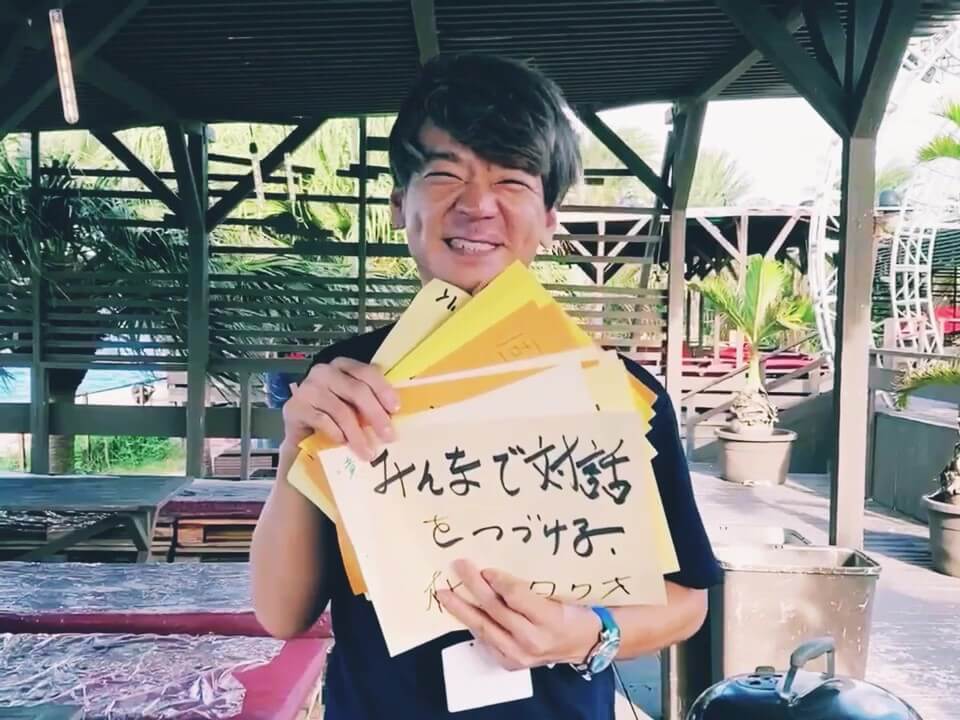 みんなで対話
をつづける、
タクさ